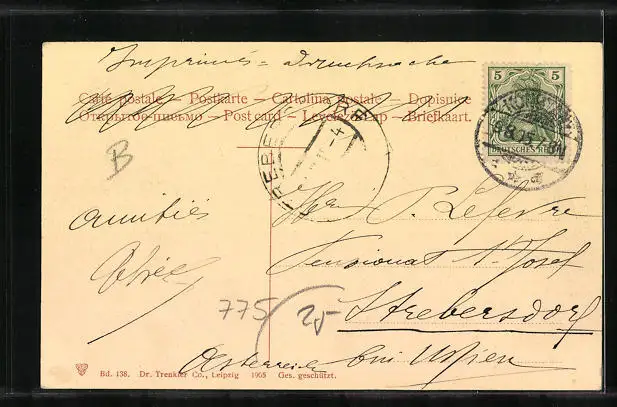 Imprimés = Drucksache
Carte postale — Postkarte — Cartolina postale — Dopisnice
Открытое письмо — Postcard — Levelező-Lap — Briefkaart.
5 5
DEUTSCHES REICH
B
Herr P. Lefevre
amitiés
Pensionat S. Josef
775 25
Strebersdorf
Österreich bei Wien
Bd. 138. Dr. Trenkler Co., Leipzig 1905 Ges. geschützt.